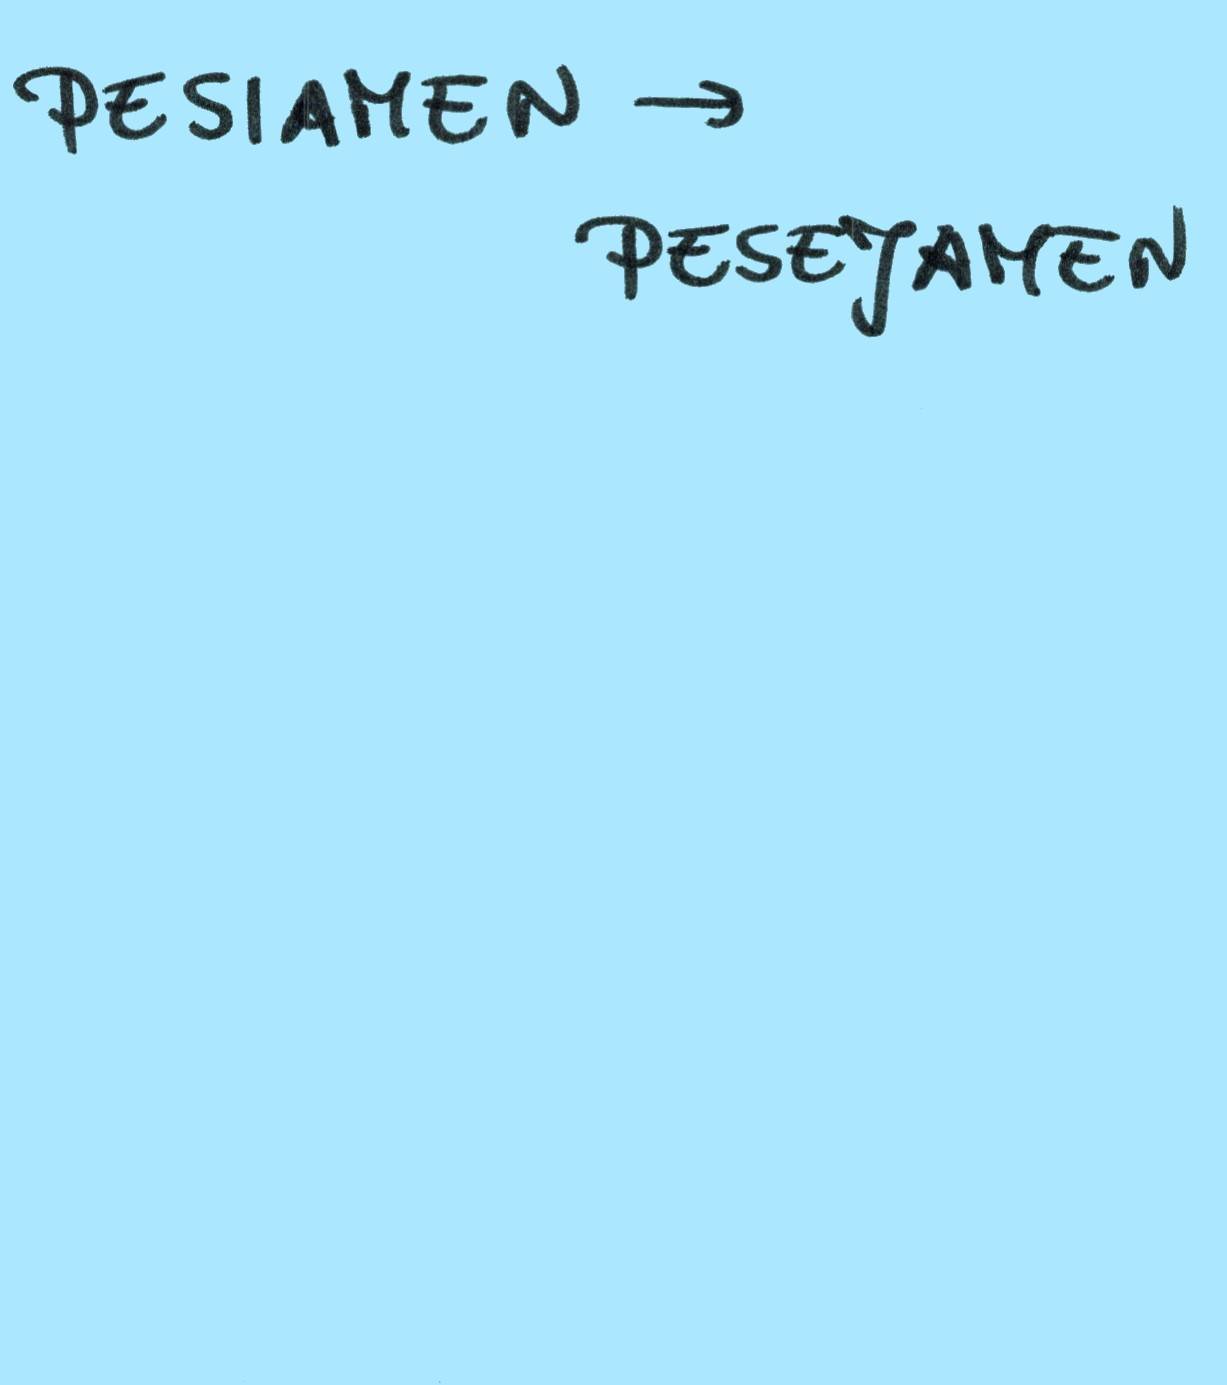 PESIAMEN →
PESEJAMEN